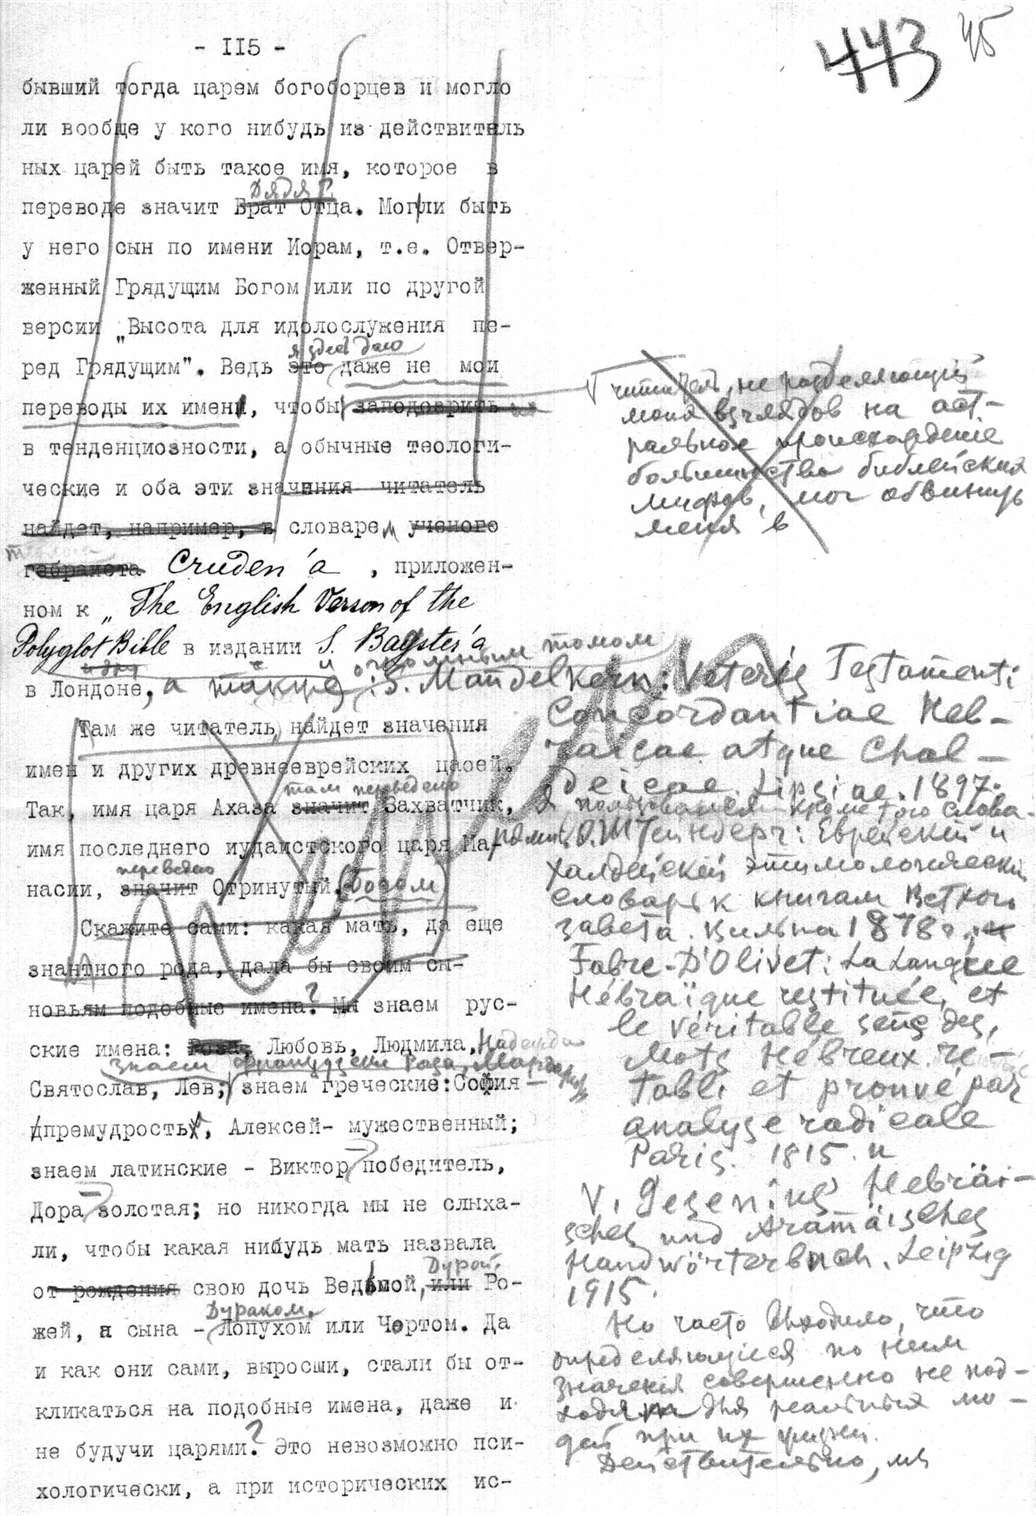 - 115 -
443 45
бывший тогда царем богоборцев и могло
ли вообще у кого нибудь из действитель
ных царей быть такое имя, которое в
Дядя
переводе значит Брат Отца. Могли быть
у него сын по имени Иорам, т.е. Отвер-
женный Грядущим Богом или по другой
версии „Высота для идолослужения пе-
я здесь даю
ред Грядущим". Ведь это даже не мои
переводы их имен, чтобы заподозрить
в тенденциозности, а обычные теологи-
ческие и оба эти значения читатель
найдет, например, в словарем ученого
гебраиста Cruden'a , приложен-
ном к „The English Verson of the
Polyglot Bible в издании S. Bagster'a
в Лондоне, а также и огромным томом
: S. Mandelkern: Veteris Testamenti
Там же читатель найдет значения
имен и других древнееврейских царей.
там переведено
Так, имя царя Ахаза значит Захватчик,
имя последнего иудаистского царя Ма-
переведено
насии, значит Отринутый (Богом)
Скажите сами: какая мать, да еще
знантного рода, дала бы своим сы-
новьям подобные имена? Мы знаем рус-
ские имена: Роза, Любовь, Людмила, Надежда
знаем французские Роза, Маргарита
Святослав, Лев; знаем греческие: София—
премудрость, Алексей- мужественный;
знаем латинские - Виктор — победитель,
Дора — золотая; но никогда мы не слыха-
ли, чтобы какая нибудь мать назвала
Дурой,
от рождения свою дочь Ведьмой, или Ро-
Дураком,
жей, а сына - Лопухом или Чортом. Да
и как они сами, выросши, стали бы от-
кликаться на подобные имена, даже и
не будучи царями? Это невозможно пси-
хологически, а при исторических ис-
читатель, не разделяющий
моих взглядов на аст-
ральное происхождение
большинства библейских
мифов, мог обвинить
меня в
Concordantiae Heb-
raicae atque Chal-
deicae. Lipsiae. 1897.
Я пользовался кроме того слова-
рями О. Штейнберг: Еврейский и
халдейский этимологический
словарь к книгам Ветхого
завета. Вильна 1878.
Fabre-D'Olivet: La Langue
Hébraïque restituée, et
le véritable sens des
Mots Hébreux ré-
tabli et prouvé par
analyse radicale
Paris. 1815. и
V. Gesenius' Hebräi-
sches und Aramäisches
Handwörterbuch. Leipzig
1915.
Но часто выходило, что
определяющиеся по ним
значения совершенно не под-
ходя для реальных лю-
дей при их жизни.
Действительно, мы